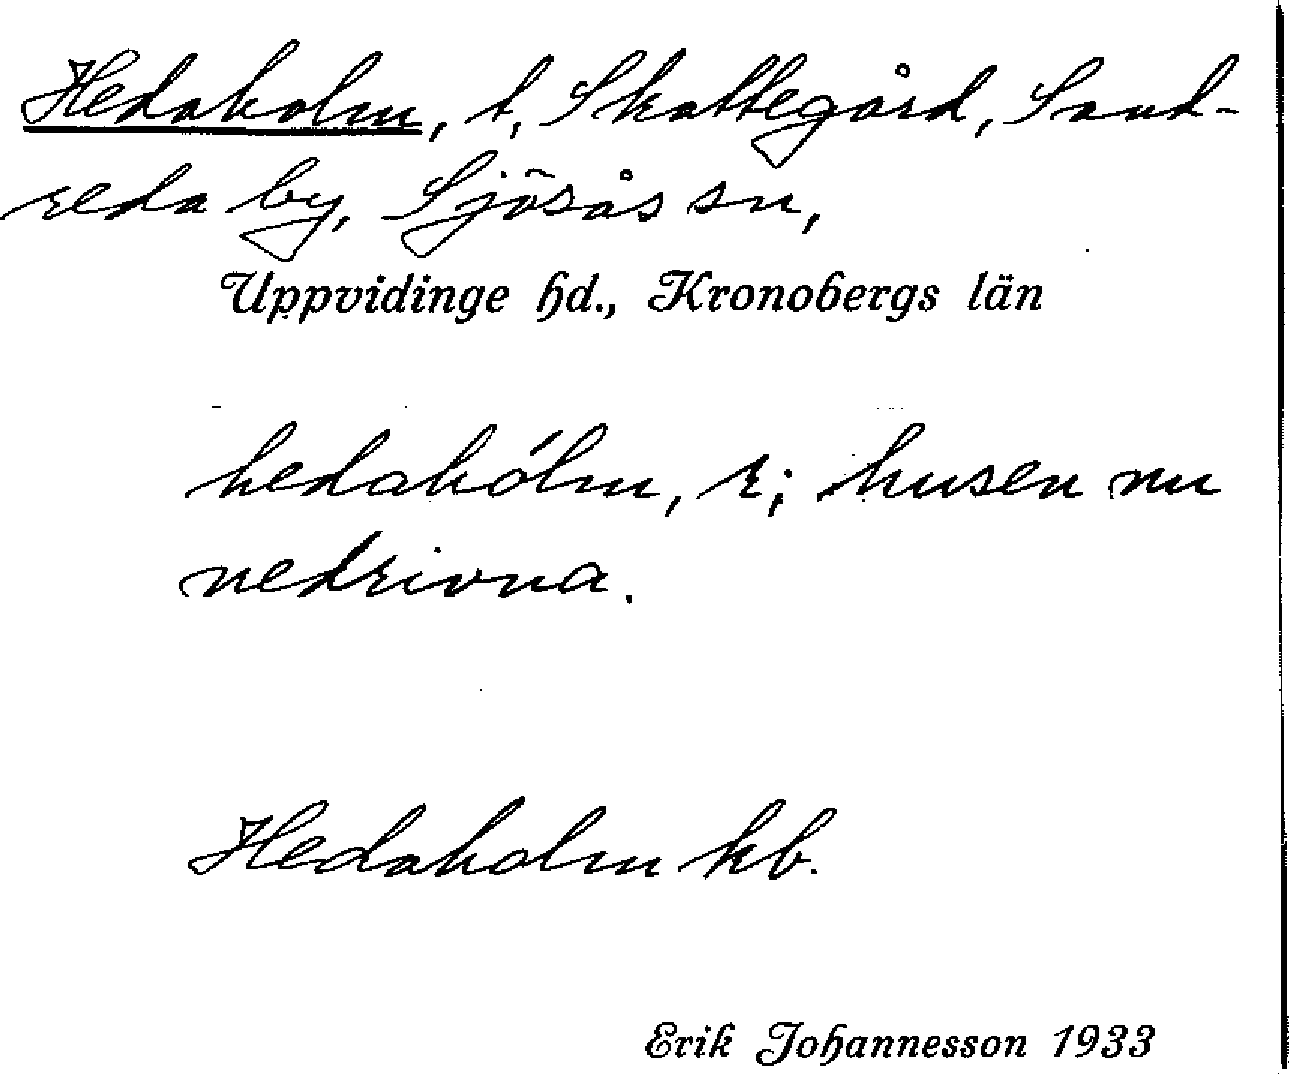 Hedaholm, t, Skattegård, Sand-
reda by, Sjösås sn,
Uppvidinge hd., Kronobergs län
hedahólm, r; husen nu
nedrivna.
Hedaholm kb.
Erik Johannesson 1933